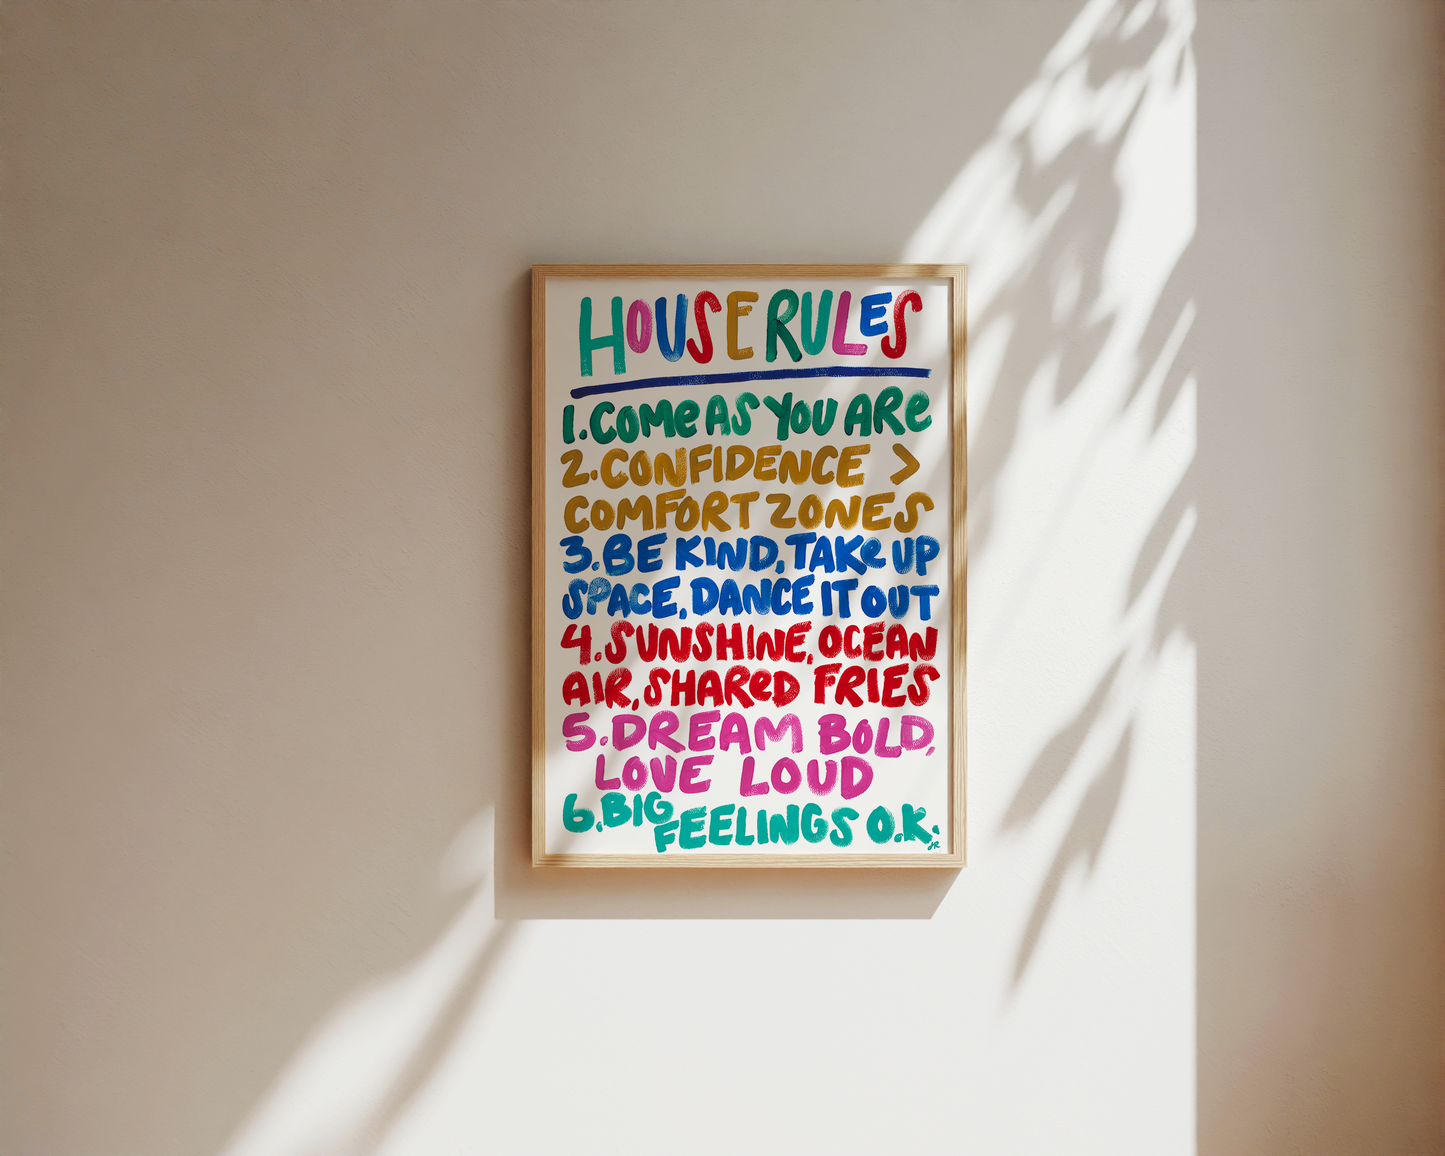 HOUSE RULES
1. COMe AS YOU ARe
2. CONFIDENCE >
COMFORT ZONES
3. BE KIND, TAKe UP
SPACE, DANCE IT OUT
4. SUNSHINE, OCEAN
AIR, SHAReD FRIES
5. DREAM BOLD,
LOVE LOUD
6. BIG
FEELINGS O.K.
JR